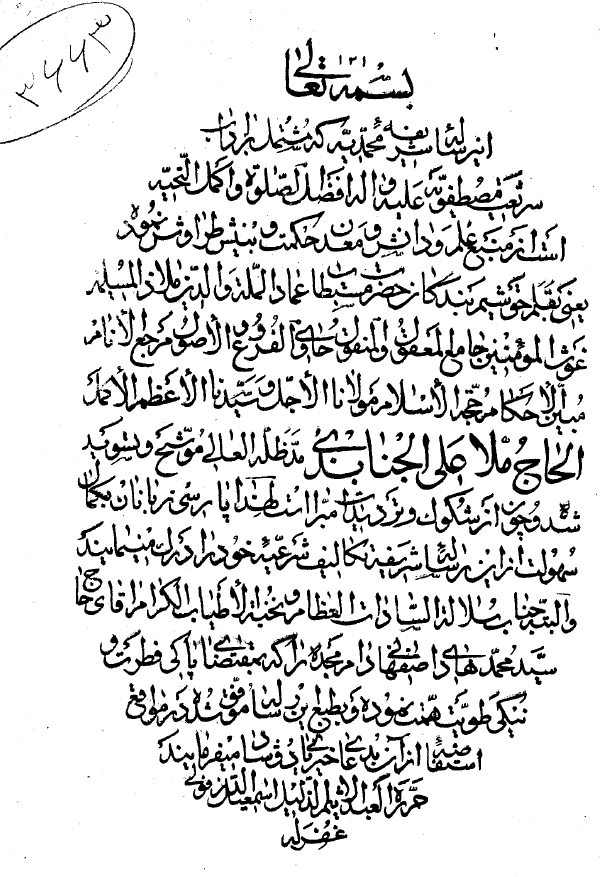 ۳۶۶۳
بسمه تعالی
این رساله شریفه محمدیه که مشتمل بر اداب
شریعت مصطفویه علیه و اله افضل الصلوة و اکمل التحیه
است از منبع علم و دانش و معدن حکمت و بینش طراوش نموده
یعنی بقلم خوشیم بندگان حضرت مستطاب عماد الملة والدین ملاذ المسلمین
غوث المؤمنین جامع المعقول والمنقول حاوی الفروع و الاصول مرجع الانام
مبین الاحکام حجة الاسلام مولانا الاجل و سیدنا الاعظم الاکمل
الحاج ملا علی الجنابذی مد ظله العالی موشح و تسوید
شده و چون از شکوک و تردیدات مبرا است لهذا پارسی زبانان بکمال
سهولت از این رساله شریفه تکالیف شرعیه خود را درک مینمایند
والبته جناب سلالة السادات العظام و نخبة الاطیاب الکرام اقای حاج
سید محمد هادی اصفهانی دام مجده را که بمقتضای پاکی فطرت و
نیکی طویت همت نموده و بطبع این رساله موفق شده در مواقع
استفاضه از آن بدعای خیری یاد و شاد میفرمایند
حرره العبد الاثیم الذلیل اسمعیل
غفر له